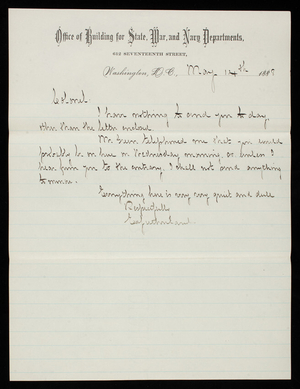 Office of Building for State, War, and Navy Departments,
612 SEVENTEENTH STREET,
Washington, D. C., May 14th 1887
Colonel.
I have nothing to send you to day
other than the letter enclosed.
Mr. telephoned me that you would
probably be in here on Wednesday morning, so unless I
hear from you to the contrary, I shall not send anything
tomorrow.
Everything here is very very quiet and dull
Respectfully